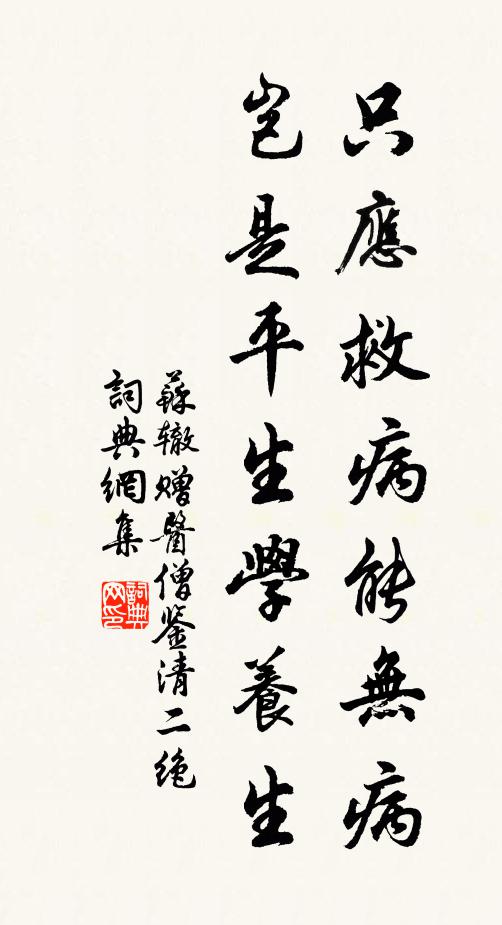 只應救病能無病
豈是平生學養生
蘇轍贈醫僧鉴清二絶
詞典網集
詞典
网印